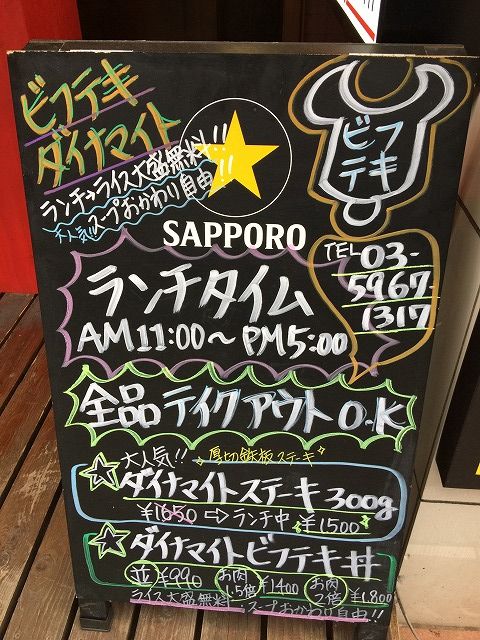 ビフテキ
ダイナマイト
ランチ→ライス大盛無料!!
スープおかわり自由!!
SAPPORO
ビフ
テキ
TEL 03-
5967-
1317
ランチタイム
AM11:00〜PM5:00
全品テイクアウトO.K
大人気!! 厚切鉄板ステーキ
ダイナマイトステーキ300g
¥1650⇨ランチ中¥1500
ダイナマイトビフテキ丼
並¥990 お肉1.5倍¥1400 お肉2倍¥1,800
ライス大盛無料 スープおかわり自由!!